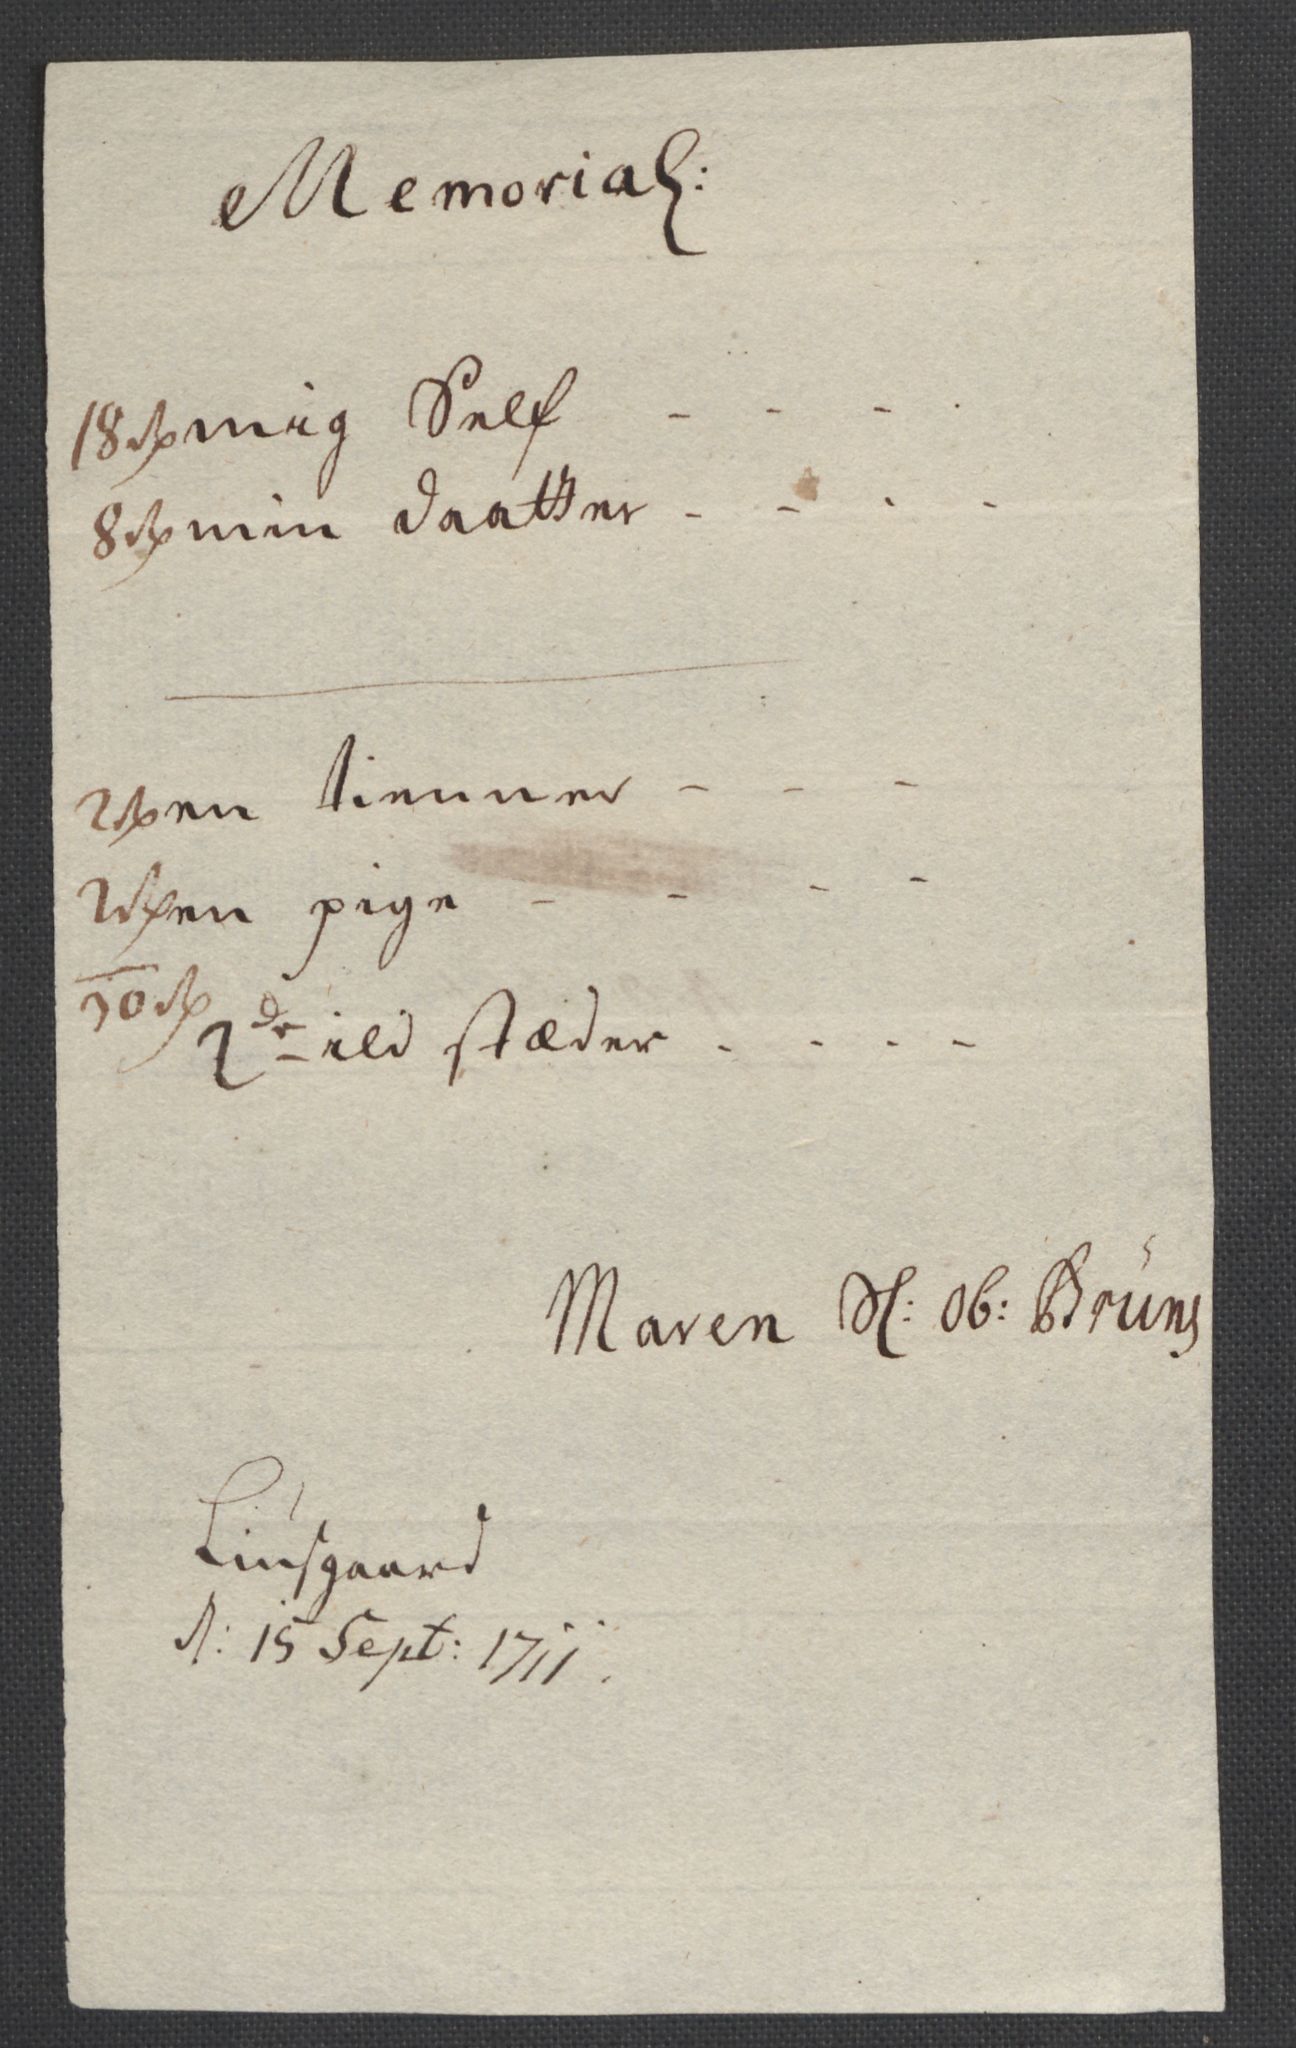 Memorial:
18 rd mig Self - - - -
8 rd min daatter - - - -
2 rd en tienner - - -
2 rd en pige - - - -
30 rd
2de ild stæder - - - -
Maren Sl: Ob: Brüns
Liusgaard
d: 15 Sept: 1711.